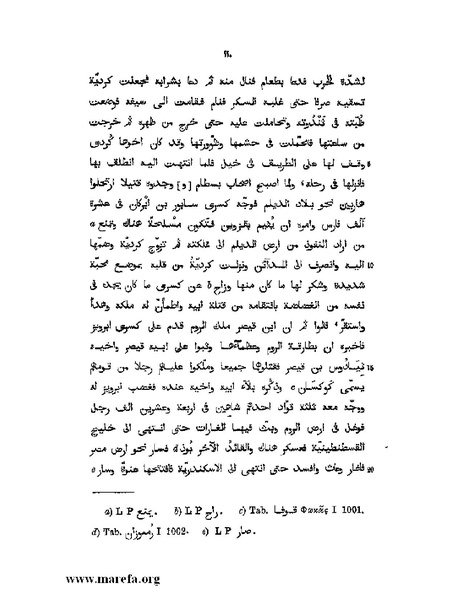 ١١٠
لشدّة الحرب فدعا بطعام فنال منه ثم دعا بشرابه فجعلت كرديّة
تسقيه صرفا حتى غلبه السكر فنام فقامت الى سيفه فوضعت
ظُبَته فى ثَنْدُوته وتحاملت عليه حتى خرج من ظهره ثم خرجت
من ساعتها فاحتملت فى حشمها وثروتها وقد كان اخوها كُردى
وقف لها على الطريق فى خيل فلما انتهت اليه انطلق بها
فانزلها فى رحله، ولما اصبح اصحاب بسطام [و] وجدوه قتيلا ارتحلوا
هاربين نحو بلاد الديلم فوجّه كسرى سابور بن ابركان فى عشرة
آلاف فارس وامره ان يُقيم بقزوين فتكون مَسْلحة هناك وتمنع a
من اراد النفوذ من ارض الديلم الى مملكته ثم تزوّج كرديّة وضمّها
اليه وانصرف الى المدائن ونزلت كرديّة من قلبه بموضع محبّة
شديدة وشكر لها ما كان منها وزاح b عن كسرى ما كان يجد فى
نفسه من الغضاضة بانتقامه من قتلة ابيه واطمأنّ له ملكه وهدأ
واستقرّ، قالوا ثم ان ابن قيصر ملك الروم قدم على كسرى ابرويز
فاخبره ان بطارقة الروم وعظمآءها وثبوا على ابيه قيصر واخيه
ثيادوس بن قيصر فقتلوها جميعا وملّكوا عليهم رجلا من قومهم
يسمّى كوكسان c وذكّره بلآء ابيه واخيه عنده فغضب ابرويز له
ووجّه معه ثلثة قوّاد احدهم شاهين فى اربعة وعشرين الف رجل
فوغل فى ارض الروم وبثّ فيهما الغارات حتى انتهى الى خليج
القسطنطينيّة فعسكر هناك والقائد الآخر بُوذ d فصار نحو ارض مصر
فاغار وعاث وافسد حتى انتهى الى الاسكندريّة فافتتحها عنوة وسار e
a) L P يمنع. b) L P راح. c) Tab. قوفا Φωκᾶς I 1001.
d) Tab. رميوزان I 1002. e) L P صار.
www.marefa.org